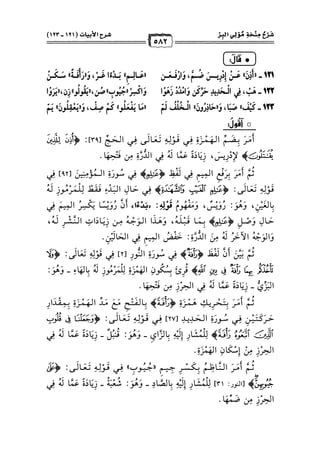 شرح الأبيات (١٢١ - ١٢٣)
شَرْحُ مِنْحَةِ مُوْلِي البِرِّ
٥٨٢
قَالَ
١٢١ - «أُذِنَ» عَنْ إِدْرِيسَ ضُمَّ، وَارْفَعَنْ «عَالِمِ» بَدْءًا غَرَّ، وَ«رَأْفَةٌ» سَكَنْ
أَقُولُ
أَمَرَ بِضَمِّ الهَمْزَةِ فِي قَوْلِهِ تَعَالَى فِي الحَجِّ [٣٩]: ﴿أُذِنَ لِلَّذِينَ
يُقَاتَلُونَ﴾ لِإِدْرِيسَ، زِيَادَةً عَمَّا لَهُ فِي الدُّرَّةِ مِنَ فَتْحِهَا.
ثُمَّ أَمَرَ بِرَفْعِ المِيمِ فِي لَفْظِ ﴿عَالِمِ﴾ فِي سُورَةِ المُؤْمِنِينَ [٩٢] فِي
قَوْلِهِ تَعَالَى: ﴿عَالِمِ الْغَيْبِ وَالشَّهَادَةِ﴾ فِي حَالِ البَدْءِ فَقَطْ لِلْمَرْمُوزِ لَهُ
بِالغَيْنِ، وَهُوَ: رُوَيْسٌ، وَمَفْهُومُ قَوْلِهِ: «بَدْءًا» أَنَّ رُوَيْسًا يَكْسِرُ المِيمَ فِي
حَالِ وَصْلِ ﴿عَالِمِ﴾ بِمَا قَبْلَهُ، وَهَذَا الوَجْهُ مِنْ زِيَادَاتِ النَّشْرِ لَهُ،
وَالوَجْهُ الآخَرُ لَهُ مِنَ الدُّرَّةِ: خَفْضُ المِيمِ فِي الحَالَيْنِ.
ثُمَّ بَيَّنَ أَنَّ لَفْظَ ﴿رَأْفَةٌ﴾ فِي سُورَةِ النُّورِ [٢] فِي قَوْلِهِ تَعَالَى: ﴿وَلَا
تَأْخُذْكُمْ بِهِمَا رَأْفَةٌ فِي دِينِ اللَّهِ﴾ قُرِئَ بِسُكُونِ الهَمْزَةِ لِلْمَرْمُوزِ لَهُ بِالهَاءِ - وَهُوَ:
البَزِّيُّ - زِيَادَةً عَمَّا لَهُ فِي الحِرْزِ مِنْ فَتْحِهَا.
ثُمَّ أَمَرَ بِتَحْرِيكِ هَمْزَةِ ﴿رَأْفَةً﴾ بِالفَتْحِ مَعَ مَدِّ الهَمْزَةِ بِمِقْدَارِ
حَرَكَتَيْنِ فِي سُورَةِ الحَدِيدِ [٢٧] فِي قَوْلِهِ تَعَالَى: ﴿وَجَعَلْنَا فِي قُلُوبِ
الَّذِينَ اتَّبَعُوهُ رَأْفَةً﴾ لِلْمُشَارِ إِلَيْهِ بِالزَّايِ - وَهُوَ: قُنْبُلٌ - زِيَادَةً عَمَّا لَهُ فِي
الحِرْزِ مِنْ إِسْكَانِ الهَمْزَةِ.
ثُمَّ أَمَرَ النَّاظِمُ بِكَسْرِ جِيمِ «جُيُوبٍ» فِي قَوْلِهِ تَعَالَى: ﴿عَلَى
جُيُوبِهِنَّ﴾ [النور: ٣١] لِلْمُشَارِ إِلَيْهِ بِالصَّادِ - وَهُوَ: شُعْبَةُ - زِيَادَةً عَمَّا لَهُ فِي
الحِرْزِ مِنْ ضَمِّهَا.